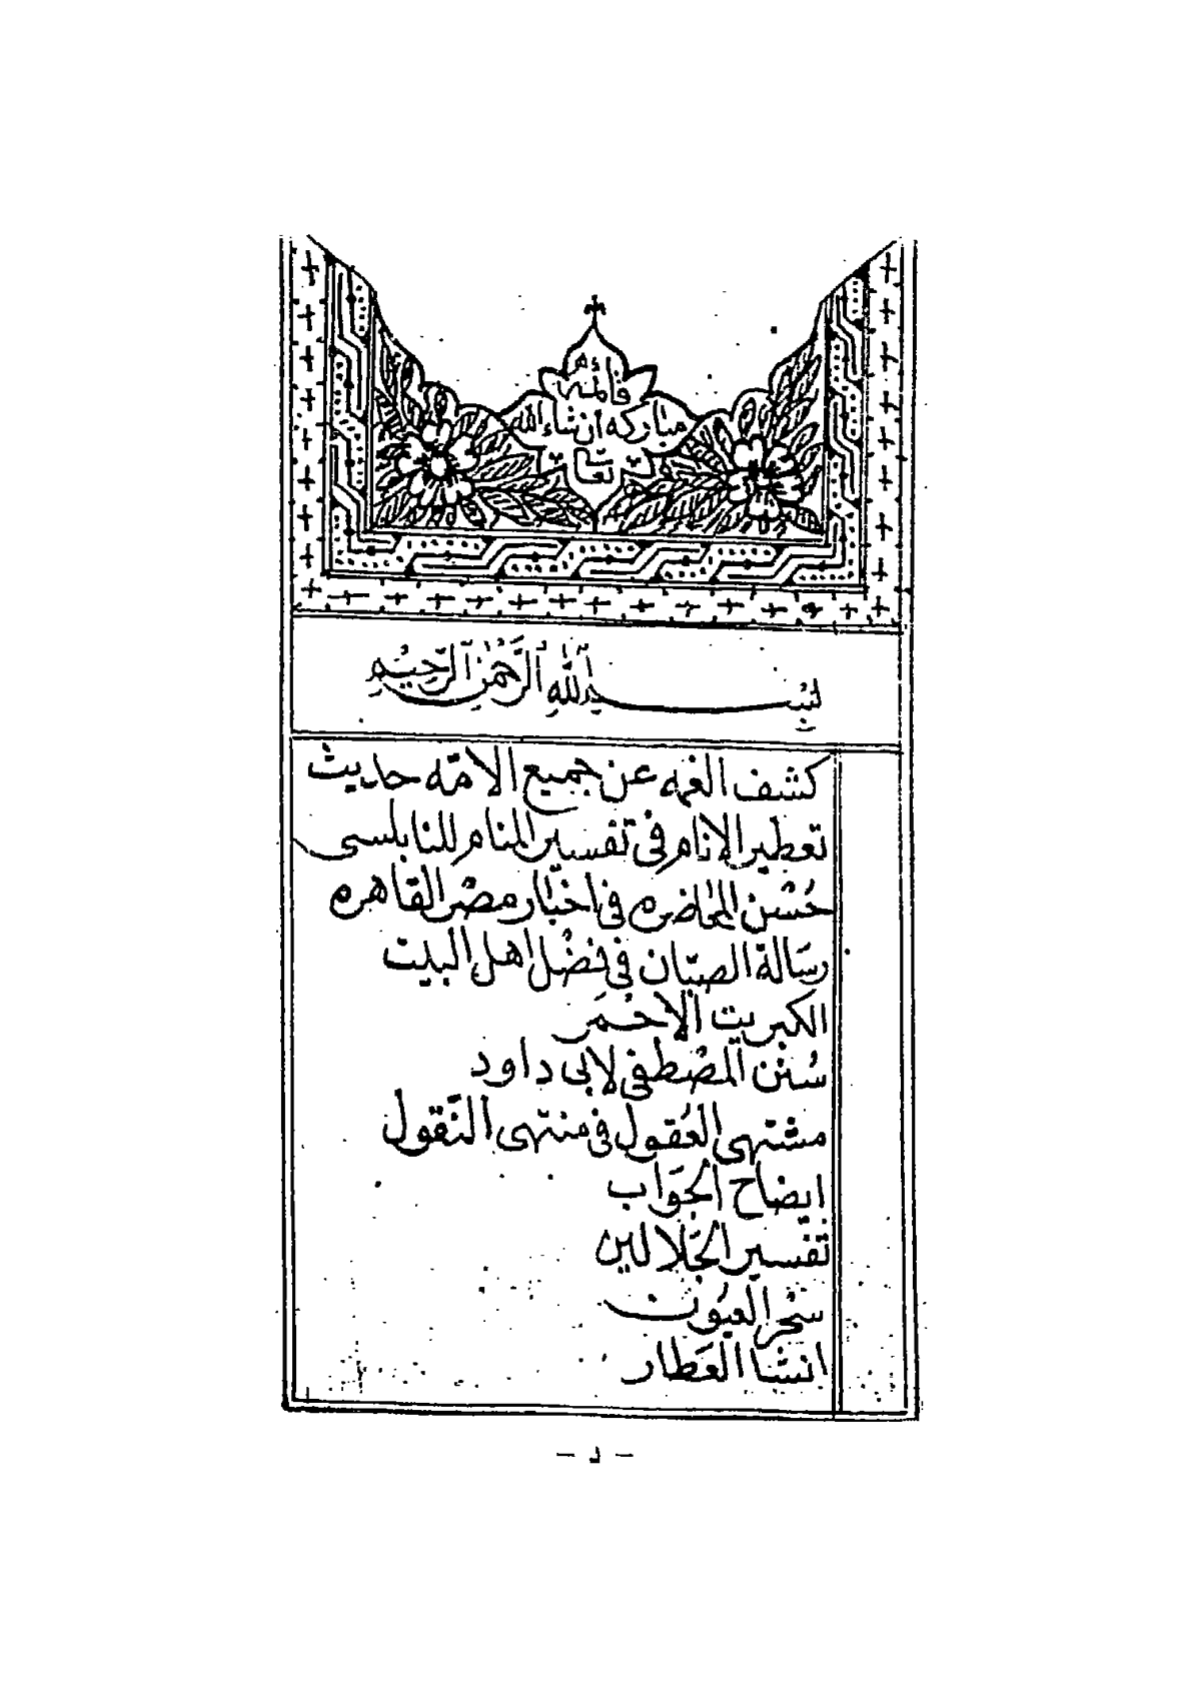 قائمة
مباركه ان شاء الله
تعا
بسم الله الرحمن الرحيم
كشف الغمه عن جميع الامّه حديث
تعطير الانام فى تفسير المنام للنابلسى
حُسْن المحاضره فى اخبار مصر القاهره
رسَالة الصبّان فى فضْل اهل البيت
الكبريت الاحْمَر
سُنن المصْطفى لابى داود
مشتهى العُقول فى منتهى النّقول
ايضاح الجَوَاب
تفسير الجَلالين
سحْر العيُون
انشا العَطار
- د -